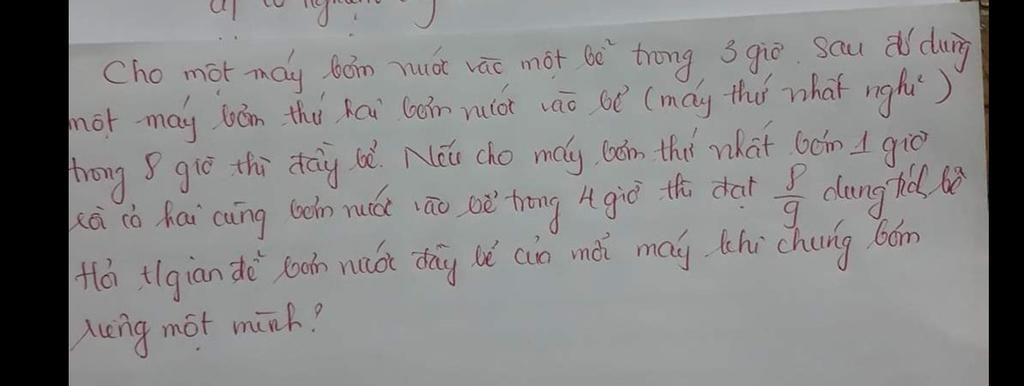 Cho một máy bơm nước vào một bể trong 3 giờ. Sau đó dùng
một máy bơm thứ hai bơm nước vào bể (máy thứ nhất nghỉ)
trong 8 giờ thì đầy bể. Nếu cho máy bơm thứ nhất bơm 1 giờ
cả hai cùng bơm nước vào bể trong 4 giờ thì đạt 8/9 dung tích bể
Hỏi t/gian để bơm nước đầy bể của mỗi máy khi chúng bơm
riêng một mình?